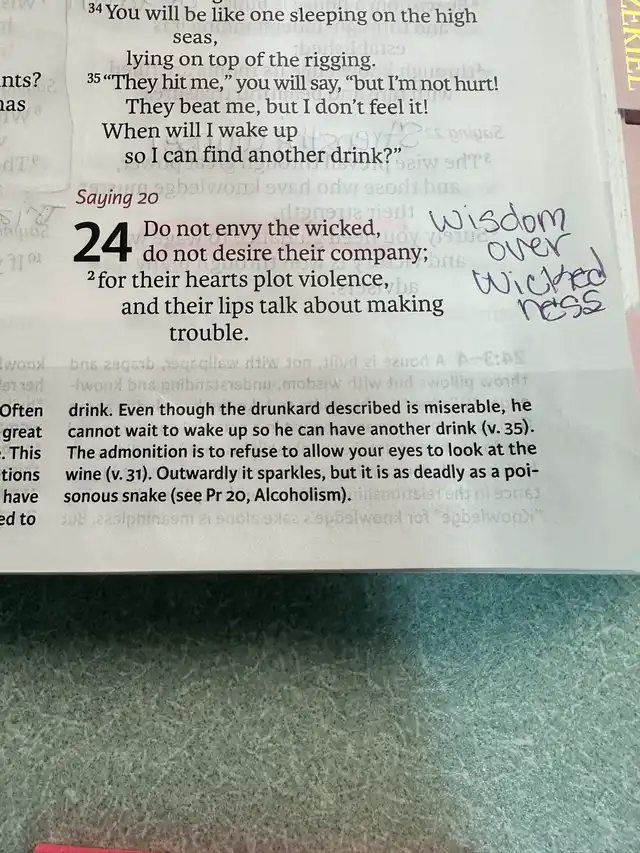 34 You will be like one sleeping on the high
seas,
lying on top of the rigging.
35 “They hit me,” you will say, “but I’m not hurt!
They beat me, but I don’t feel it!
When will I wake up
so I can find another drink?”
Saying 20
24 Do not envy the wicked,
do not desire their company;
2 for their hearts plot violence,
and their lips talk about making
trouble.
Wisdom
over
Wicked
ness
drink. Even though the drunkard described is miserable, he
cannot wait to wake up so he can have another drink (v. 35).
The admonition is to refuse to allow your eyes to look at the
wine (v. 31). Outwardly it sparkles, but it is as deadly as a poi-
sonous snake (see Pr 20, Alcoholism).
Often
great
. This
tions
have
ed to
nts?
EZEKIEL